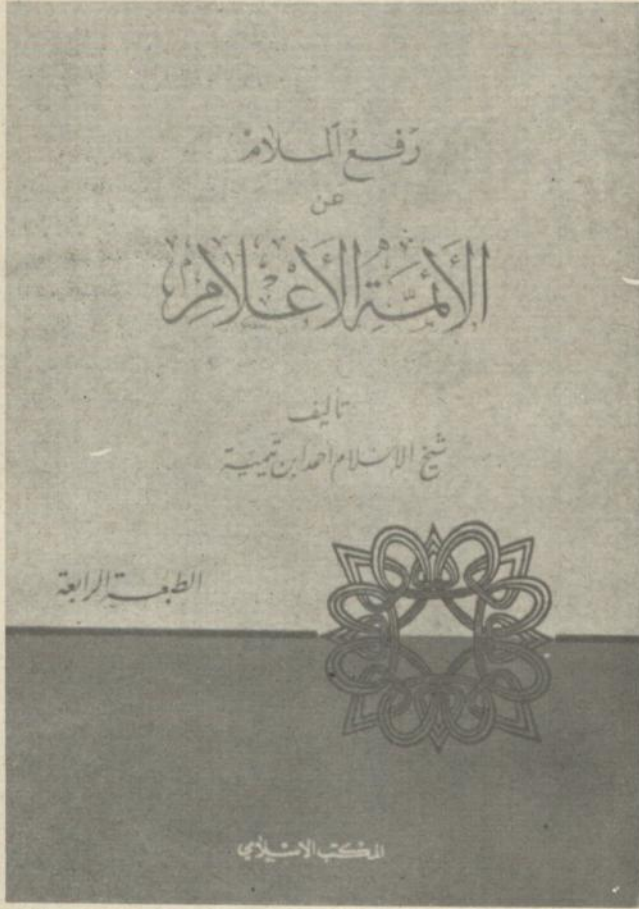 رَفعُ المَلامْ
عن
الأَئمَّةِ الأَعْلَامِ
تأليف
شيخ الاسلام احمد ابن تيمية
الطبعة الرابعة
المكتب الاسلامي